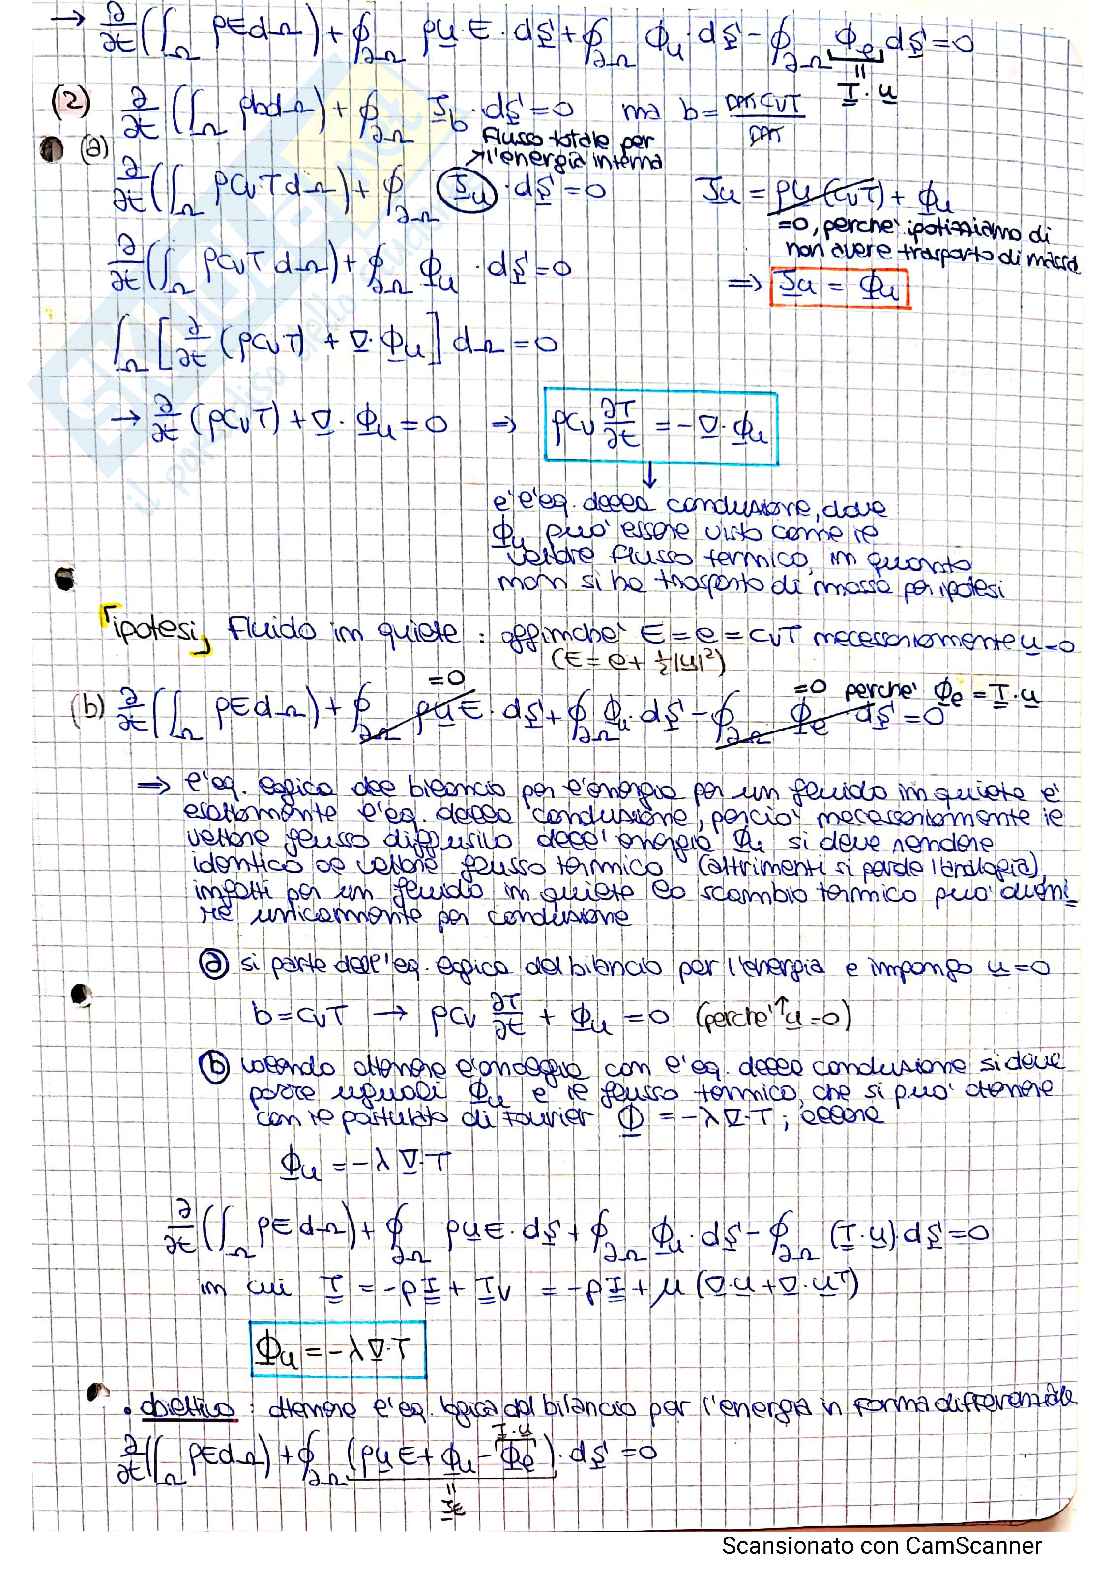 → ∂/∂t (∫_Ω ρE dΩ) + ∮_∂Ω ρu E · dS + ∮_∂Ω Φu · dS − ∮_∂Ω Φe dS = 0
= T · u
(2) ∂/∂t (∫_Ω ρb dΩ) + ∮_∂Ω Jb · dS = 0 ma b =
flusso totale per
l'energia interna
(a) ∂/∂t (∫_Ω ρCvT dΩ) + ∮_∂Ω Ju · dS = 0 Ju = ρu(CvT) + Φu
=0, perche' ipotizziamo di
non avere trasporto di massa
∂/∂t (∫_Ω ρCvT dΩ) + ∮_∂Ω Φu · dS = 0 ⇒ Ju = Φu
∫_Ω [∂/∂t (ρCvT) + ∇· Φu] dΩ = 0
→ ∂/∂t (ρCvT) + ∇· Φu = 0 ⇒ ρCv ∂T/∂t = −∇· Φu
e' l'eq. della conduzione, dove
Φu puo' essere visto come il
vettore flusso termico, in quanto
non si ha trasporto di massa per ipotesi
"ipotesi" fluido in quiete : affinche' E = e = CvT necessariamente u=0
(E = e + ½|u|²)
=0 =0 perche' Φe = T · u
(b) ∂/∂t (∫_Ω ρE dΩ) + ∮_∂Ω ρu E · dS + ∮_∂Ω Φu · dS − ∮_∂Ω Φe dS = 0
⇒ l'eq. logica del bilancio per l'energia per un fluido in quiete e'
esattamente l'eq. della conduzione, percio' necessariamente il
vettore flusso diffusivo dell'energia Φu si deve rendere
identico al vettore flusso termico (altrimenti si perde l'analogia),
infatti per un fluido in quiete lo scambio termico puo' avveni
re unicamente per conduzione
(a) si parte dall'eq. logica del bilancio per l'energia e impongo u=0
b = CvT → ρCv ∂T/∂t + Φu = 0 (perche' u=0)
(b) volendo ottenere l'analogia con l'eq. della conduzione si deve
porre uguali Φu e il flusso termico, che si puo' ottenere
con il postulato di Fourier Φ = −λ∇·T ; allora
Φu = −λ∇·T
∂/∂t (∫_Ω ρE dΩ) + ∮_∂Ω ρu E · dS + ∮_∂Ω Φu · dS − ∮_∂Ω (T · u) · dS = 0
in cui T = −pI + Tv = −pI + μ(∇·u + ∇·uᵀ)
Φu = −λ∇·T
• obiettivo : ottenere l'eq. logica del bilancio per l'energia in forma differenziale
T · u
∂/∂t (∫_Ω ρE dΩ) + ∮_∂Ω (ρu E + Φu − Φe) · dS = 0
= JE
Scansionato con CamScanner